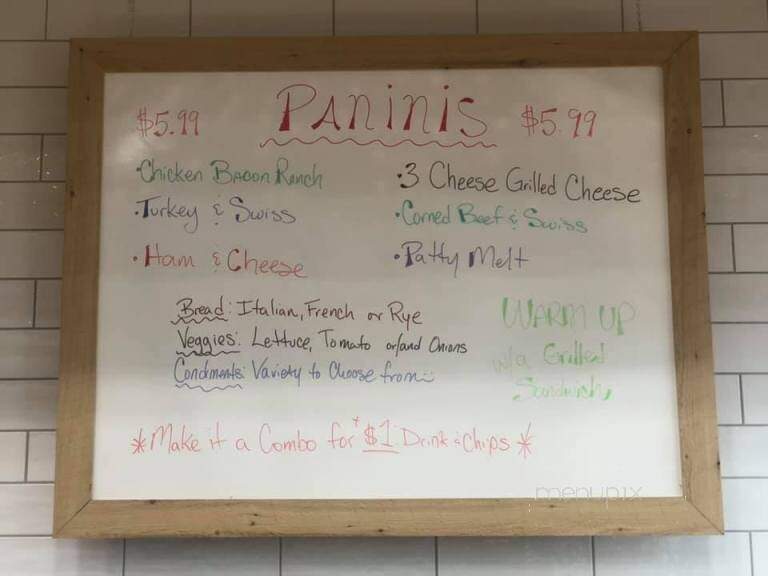 $5.99 PANINIS $5.99
•Chicken Bacon Ranch
•Turkey & Swiss
•Ham & Cheese
•3 Cheese Grilled Cheese
•Corned Beef & Swiss
•Patty Melt
Bread: Italian, French or Rye
Veggies: Lettuce, Tomato or/and Onions
Condments: Variety to Choose from
WARM UP
w/a Grilled
Sandwich,
*Make it a Combo for *$1 Drink & Chips *
menupix